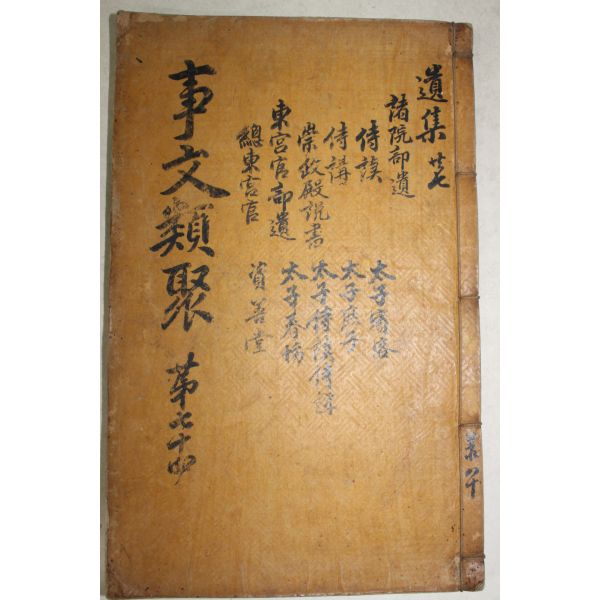 遺集 廿七
諸院部遺
侍讀
侍講
崇政殿說書
東宮官部遺
總東宮官
太子賓客
太子庶子
太子侍讀侍講
太子春坊
資善堂
事文類聚
第七十四